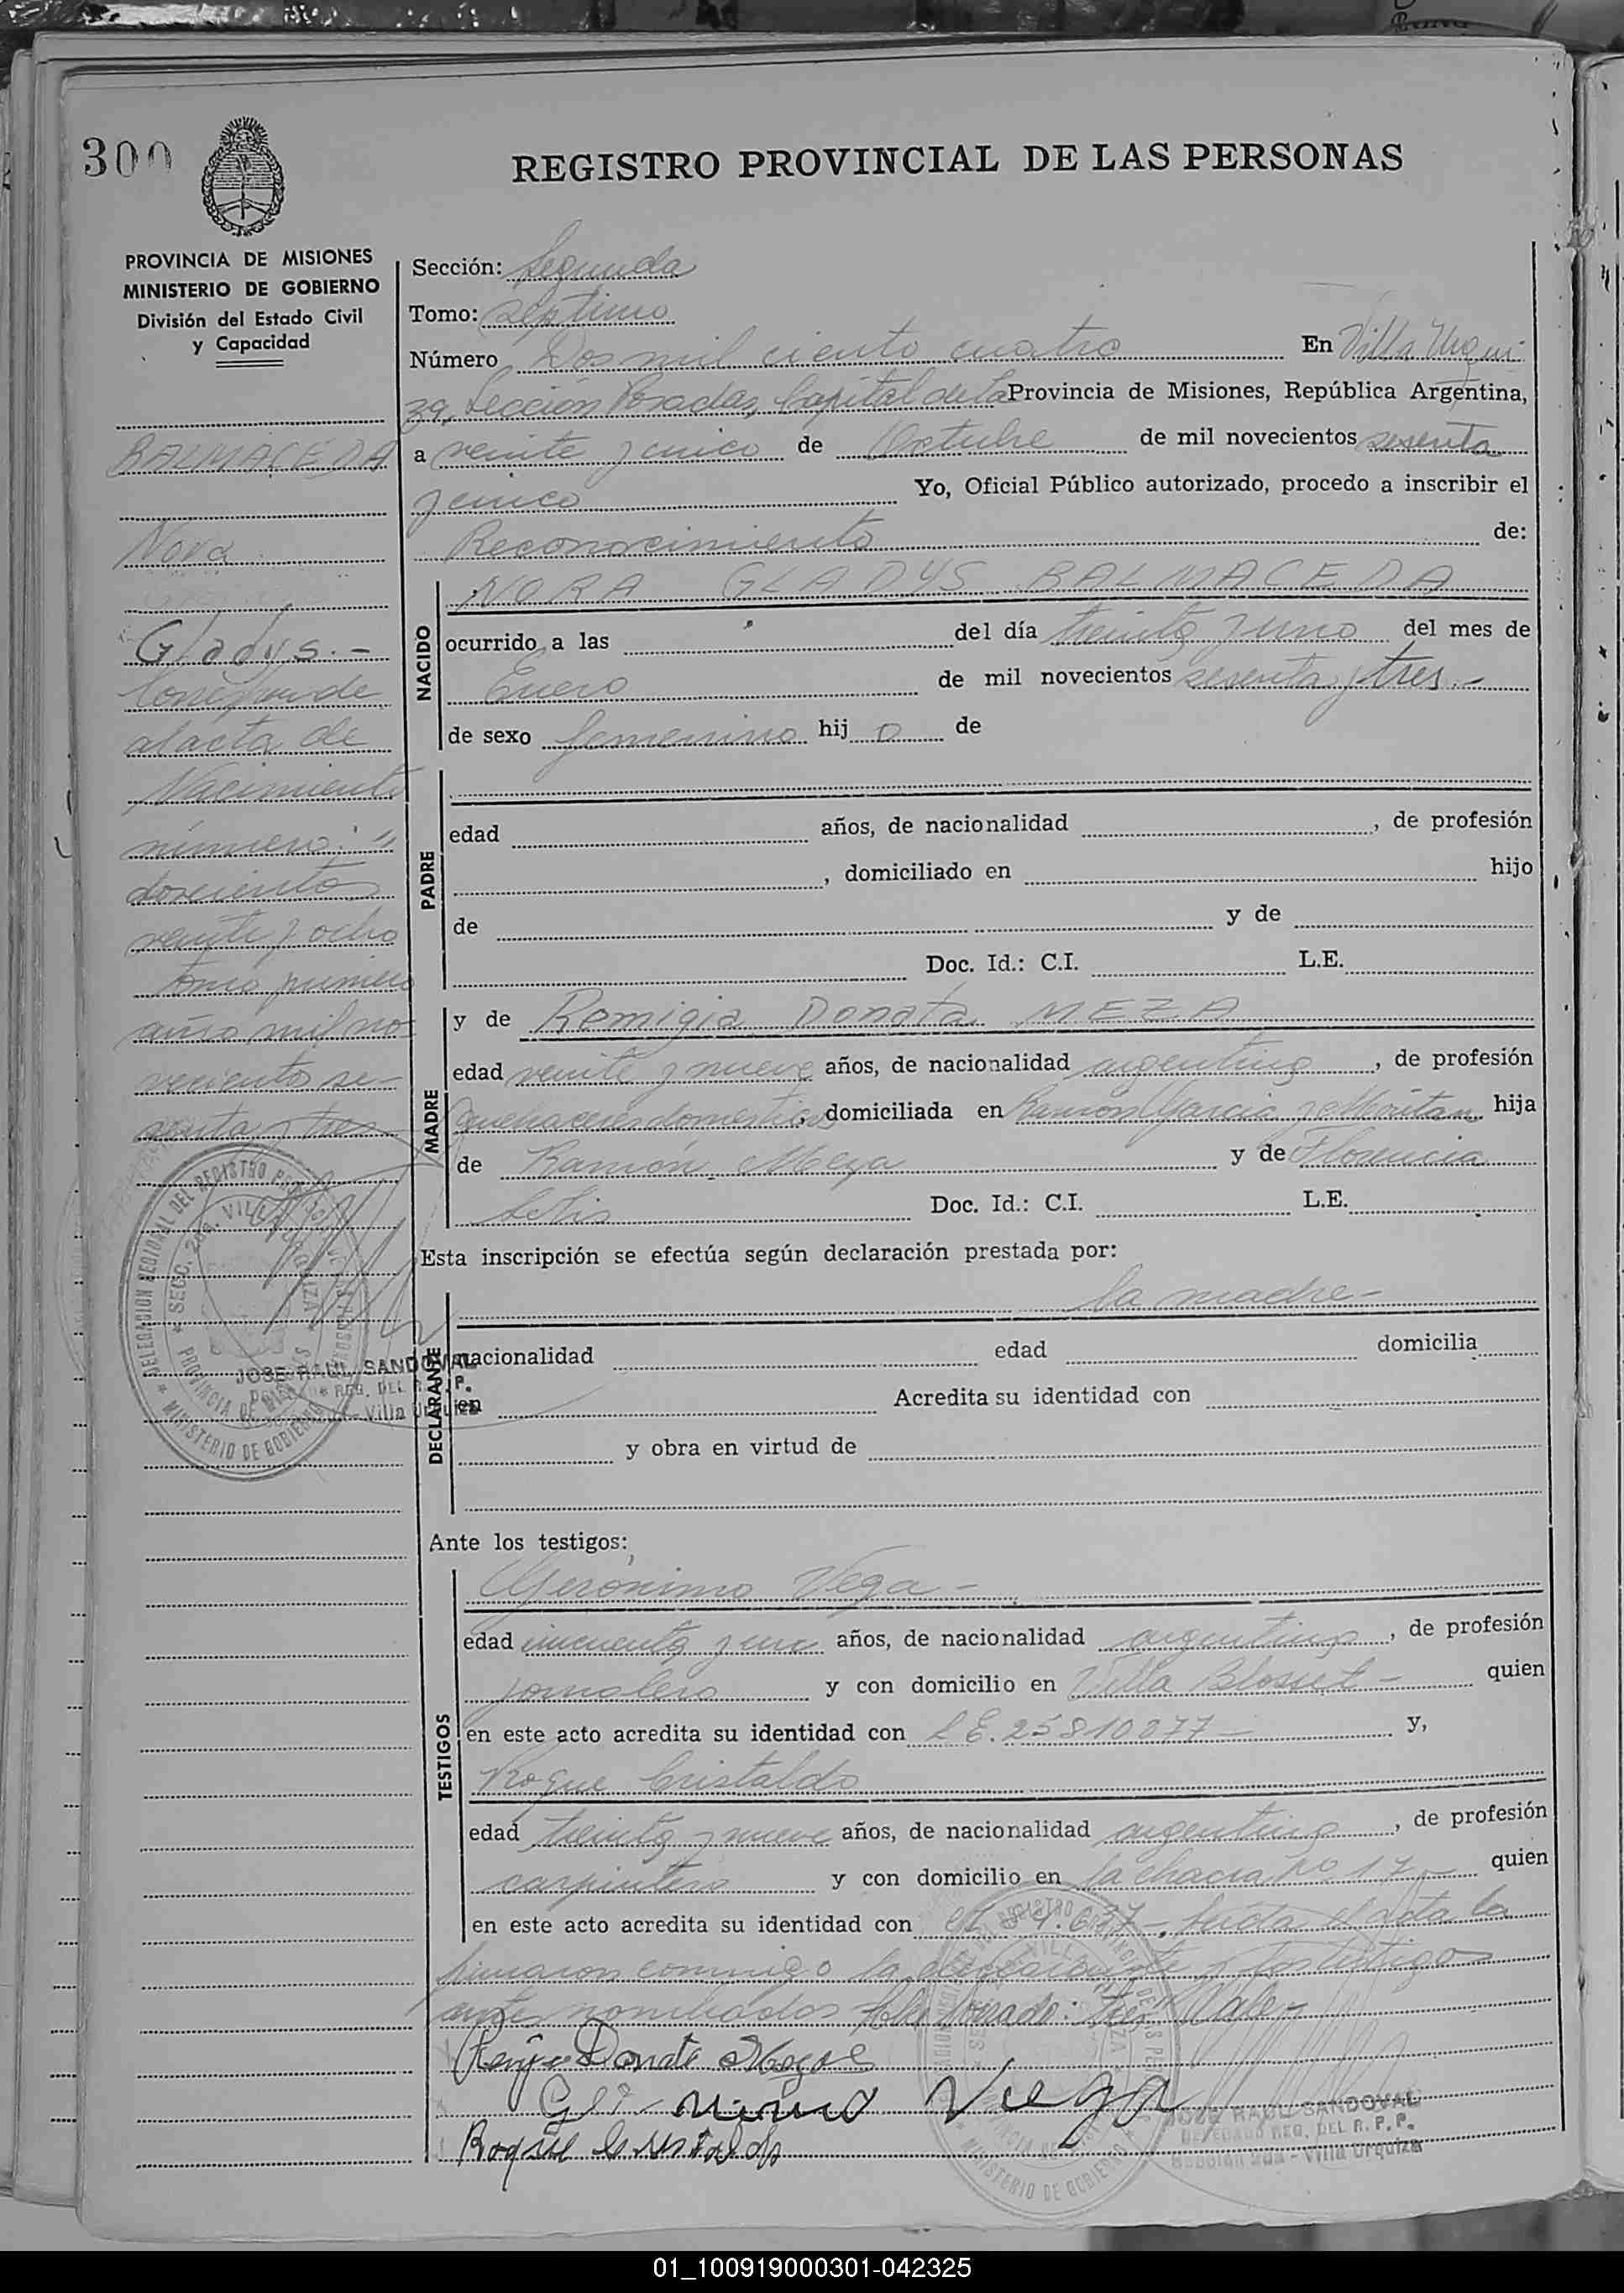 300
REGISTRO PROVINCIAL DE LAS PERSONAS
PROVINCIA DE MISIONES
MINISTERIO DE GOBIERNO
División del Estado Civil
y Capacidad
BALMACEDA
Nora
Gladys.-
Corresponde
al acta de
Nacimiento
número:"
doscientos
veinte y ocho
tomo primero
año mil no-
vecientos se-
senta y tres
JOSE RAUL SANDOVAL
REG. DEL R. P. P.
Villa Urquiza
Sección: Segunda
Tomo: Septimo
Número Dos mil ciento cuatro En Villa Urqui
za, Sección Posadas, Capital de la Provincia de Misiones, República Argentina,
a veinte y cinco de Octubre de mil novecientos sesenta
y cinco Yo, Oficial Público autorizado, procedo a inscribir el
Reconocimiento de:
NACIDO
NORA GLADYS BALMACEDA
ocurrido a las del día treinta y uno del mes de
Enero de mil novecientos sesenta y tres.-
de sexo femenino hij a de
PADRE
edad años, de nacionalidad , de profesión
, domiciliado en hijo
de y de
Doc. Id.: C.I. L.E.
MADRE
y de Remigia Donata MEZA
edad veinte y nueve años, de nacionalidad argentina , de profesión
quehaceres domesticos, domiciliada en Ramón Garcia y hija
de Ramón Meza y de Florencia
Doc. Id.: C.I. L.E.
Esta inscripción se efectúa según declaración prestada por:
DECLARANTE
la madre-
nacionalidad edad domicilia
en Acredita su identidad con
y obra en virtud de
Ante los testigos:
TESTIGOS
Gerónimo Vega-
edad cincuenta y uno años, de nacionalidad argentino , de profesión
jornalero y con domicilio en Villa Blosset - quien
en este acto acredita su identidad con L E. 25810277- y,
Roque Cristaldo
edad treinta y nueve años, de nacionalidad argentino , de profesión
carpintero y con domicilio en la chacra no 17- quien
en este acto acredita su identidad con Leida el acta la
firmaron conmigo la y los testigos
antes nombrados Vale-
Donata
Vega
Roque Cristaldo
JOSE RAUL SANDOVAL
DELEGADO REG. DEL R. P. P.
Sección 2da - Villa Urquiza
01_100919000301-042325